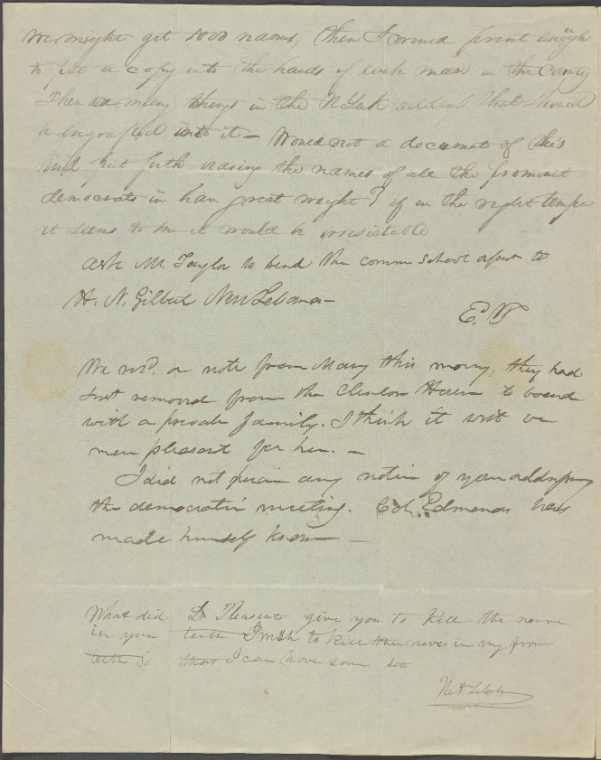 we might get 1000 names, then I would print enough
to put a copy into the hands of each man in the County
There are many things in the N York address that should
be engrafted into it – Would not a document of this
kind put forth bearing the names of all the prominent
democrats in have great weight? if in the right temper
it seems to me it would be irresistable
Ask Mr Taylor to send the common school paper to
H. N. Gilbert New Lebanon –
We recd. a note from Mary this morng, they had
just removed from the House to board
with a private family. I think it will be
more pleasant for her. –
I did not perceive any notice of your addressing
the democratic meeting. Col. Edmonds has
made himself known –
What did Dr give you to kill the nerve
in your teeth I wish to kill the nerve in my front
teeth so that I can have some set